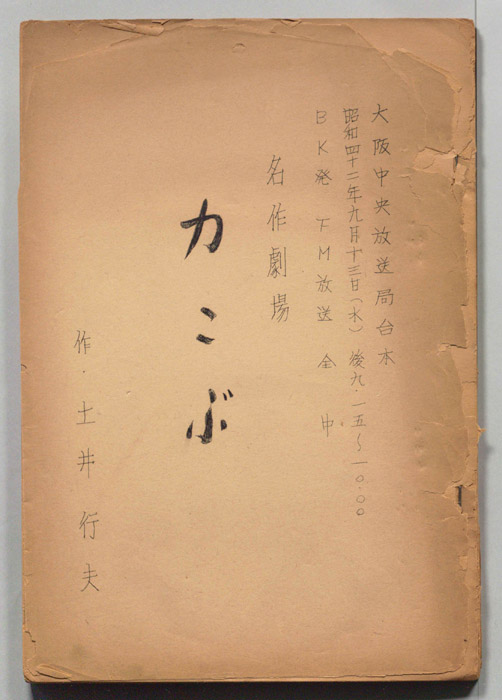 大阪中央放送局台本
昭和四十二年九月十三日(水) 後九・一五〜一〇・〇〇
BK発 FM放送 全中
名作劇場
力こぶ
作・土井行夫